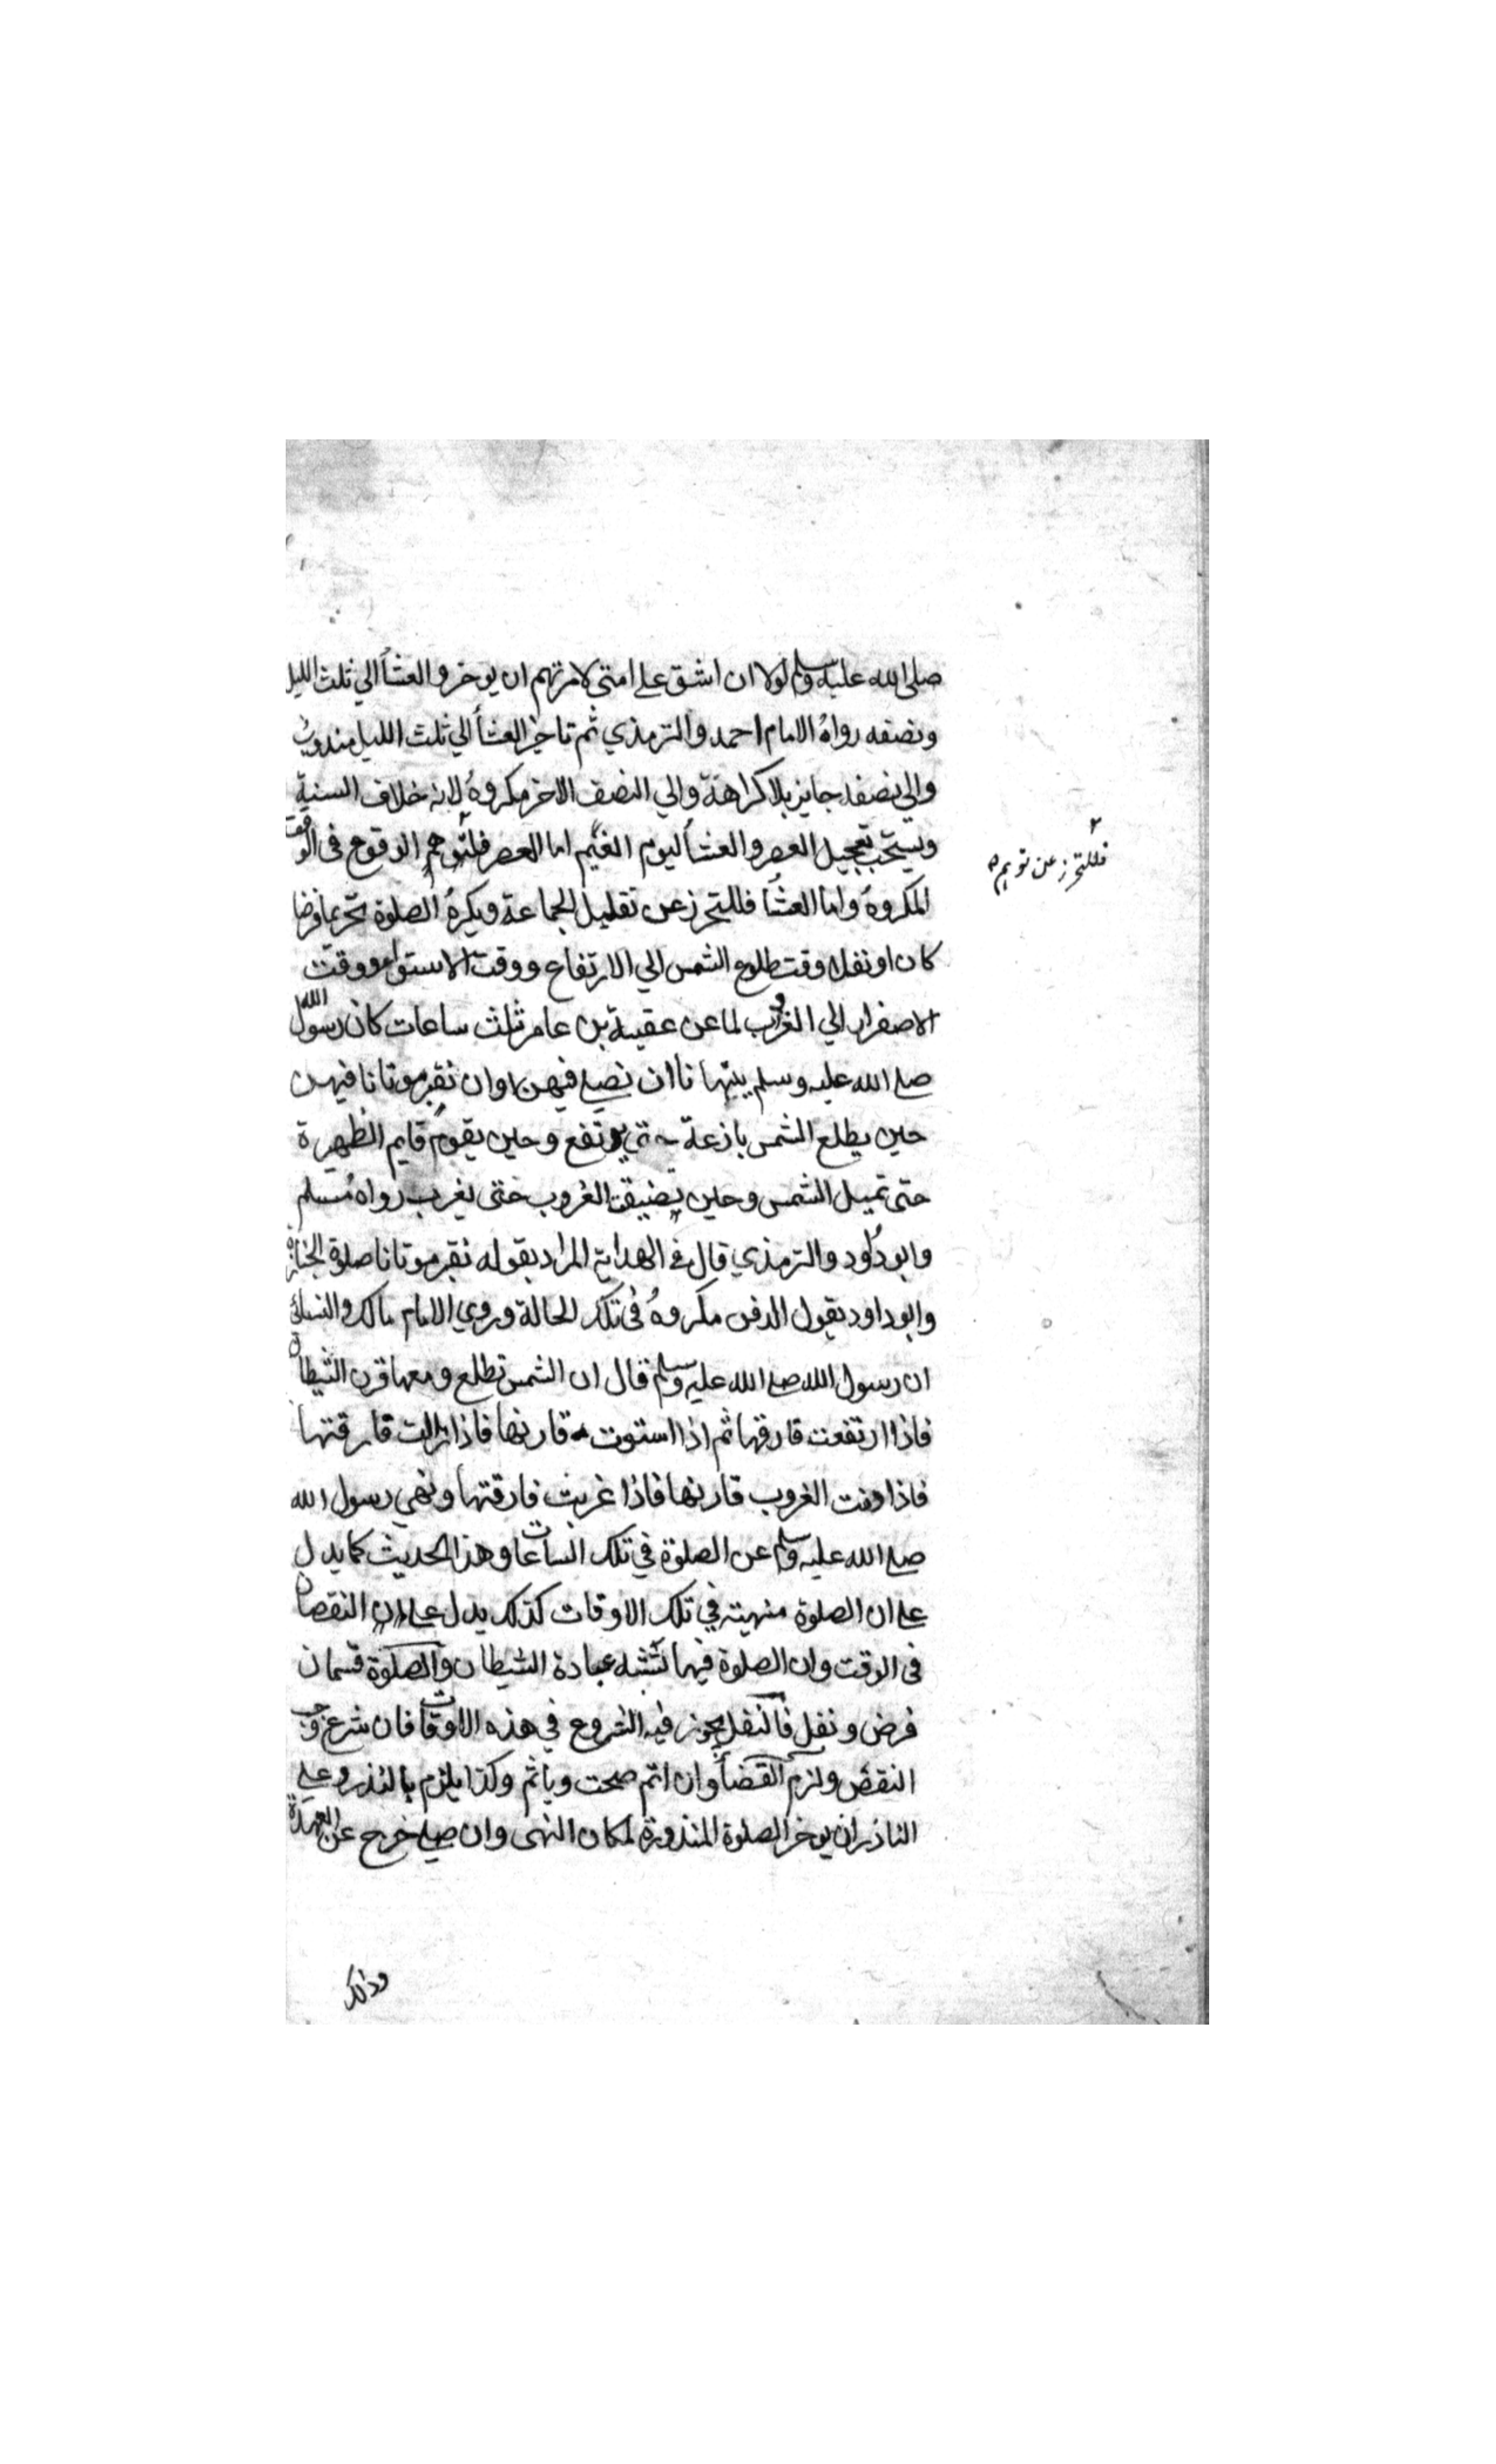 صلى الله عليه وسلم لولا ان اشق على امتي لامرتهم ان يوخروا العشأ الي ثلث الليل
ونصفه رواه الامام احمد والترمذي ثم تاخير العشأ الي ثلث الليل مندوب
والي نصفه جايز بلا كراهة والي النصف الاخر مكروه لانه خلاف السنية
ويستحب تعجيل العصر والعشأ ليوم الغيم اما العصر فلتوهم الوقوع في الوقت
فللتحرز عن توهم
المكروه واما العشأ فللتحرز عن تقليل الجماعة ويكره الصلوة تحريما فرضا
كان او نفلا وقت طلوع الشمس الي الارتفاع ووقت الاستواء ووقت
الاصفرار الي الغروب لما عن عقبة بن عامر ثلث ساعات كان رسول الله
صلى الله عليه وسلم ينهانا ان نصلي فيهن وان نقبر موتانا فيهن
حين يطلع الشمس بازغة حتي يرتفع وحين يقوم قايم الظهيرة
حتى تميل الشمس وحين يضيف الغروب حتى يغرب رواه مسلم
وابو داود والترمذي قال في الهداية المراد بقوله نقبر موتانا صلوة الجنازة
وابو داود يقول الدفن مكروه في تلك الحالة وروي الامام مالك والنسائي
ان رسول الله صلى الله عليه وسلم قال ان الشمس تطلع ومعها قرن الشيطان
فاذا ارتفعت فارقها ثم اذا استوت قارنها فاذا زالت فارقتها
فاذا دنت الغروب قارنها فاذا غربت فارقتها ونهي رسول الله
صلى الله عليه وسلم عن الصلوة في تلك الساعات وهذا الحديث كما يدل
على ان الصلوة منهيته في تلك الاوقات كذلك يدل على ان النقصان
في الوقت وان الصلوة فيها تشبه عبادة الشيطان والصلوة قسمان
فرض ونفل فالنفل يجوز فيه الشروع في هذه الاوقات فان شرع وجب
النقض ولزم القضأ وان اتم صحت وياثم وكذا يلزم بالنذر وعلي
الناذر ان يوخر الصلوة المنذورة لمكان النهى وان صلى خرج عن العهدة
وذلك